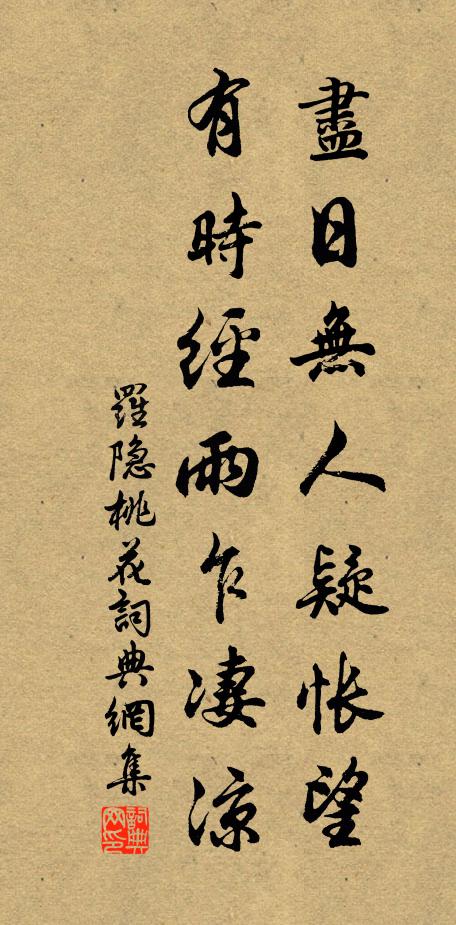 盡日無人疑悵望
有時經雨乍凄涼
羅隐桃花詞典網集
詞典网印